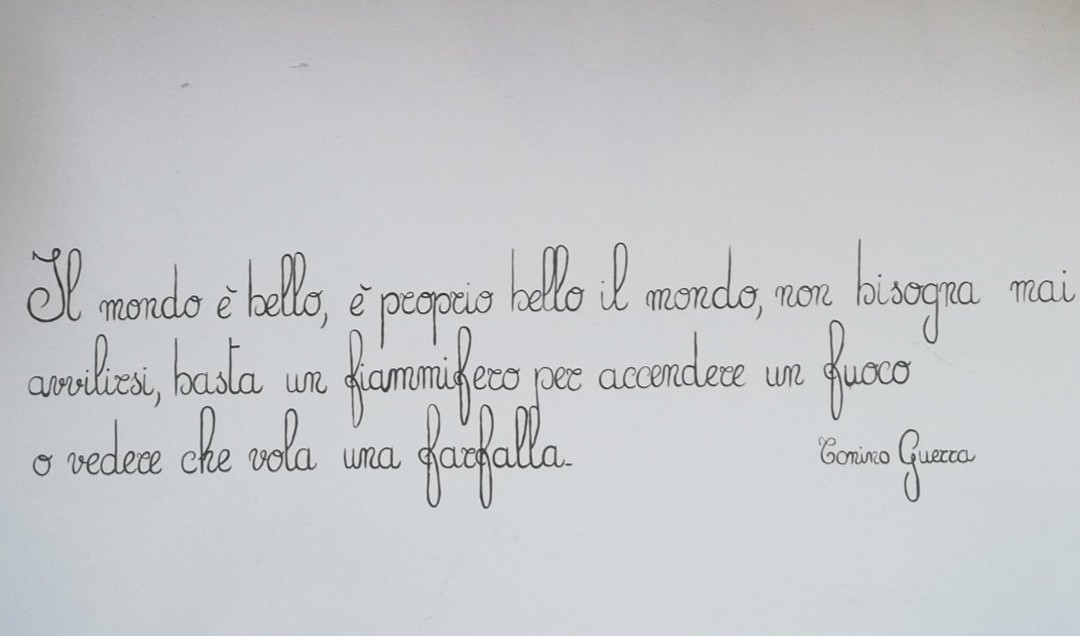 Il mondo è bello, è proprio bello il mondo, non bisogna mai
avvilirsi, basta un fiammifero per accendere un fuoco
o vedere che vola una farfalla.
Tonino Guerra